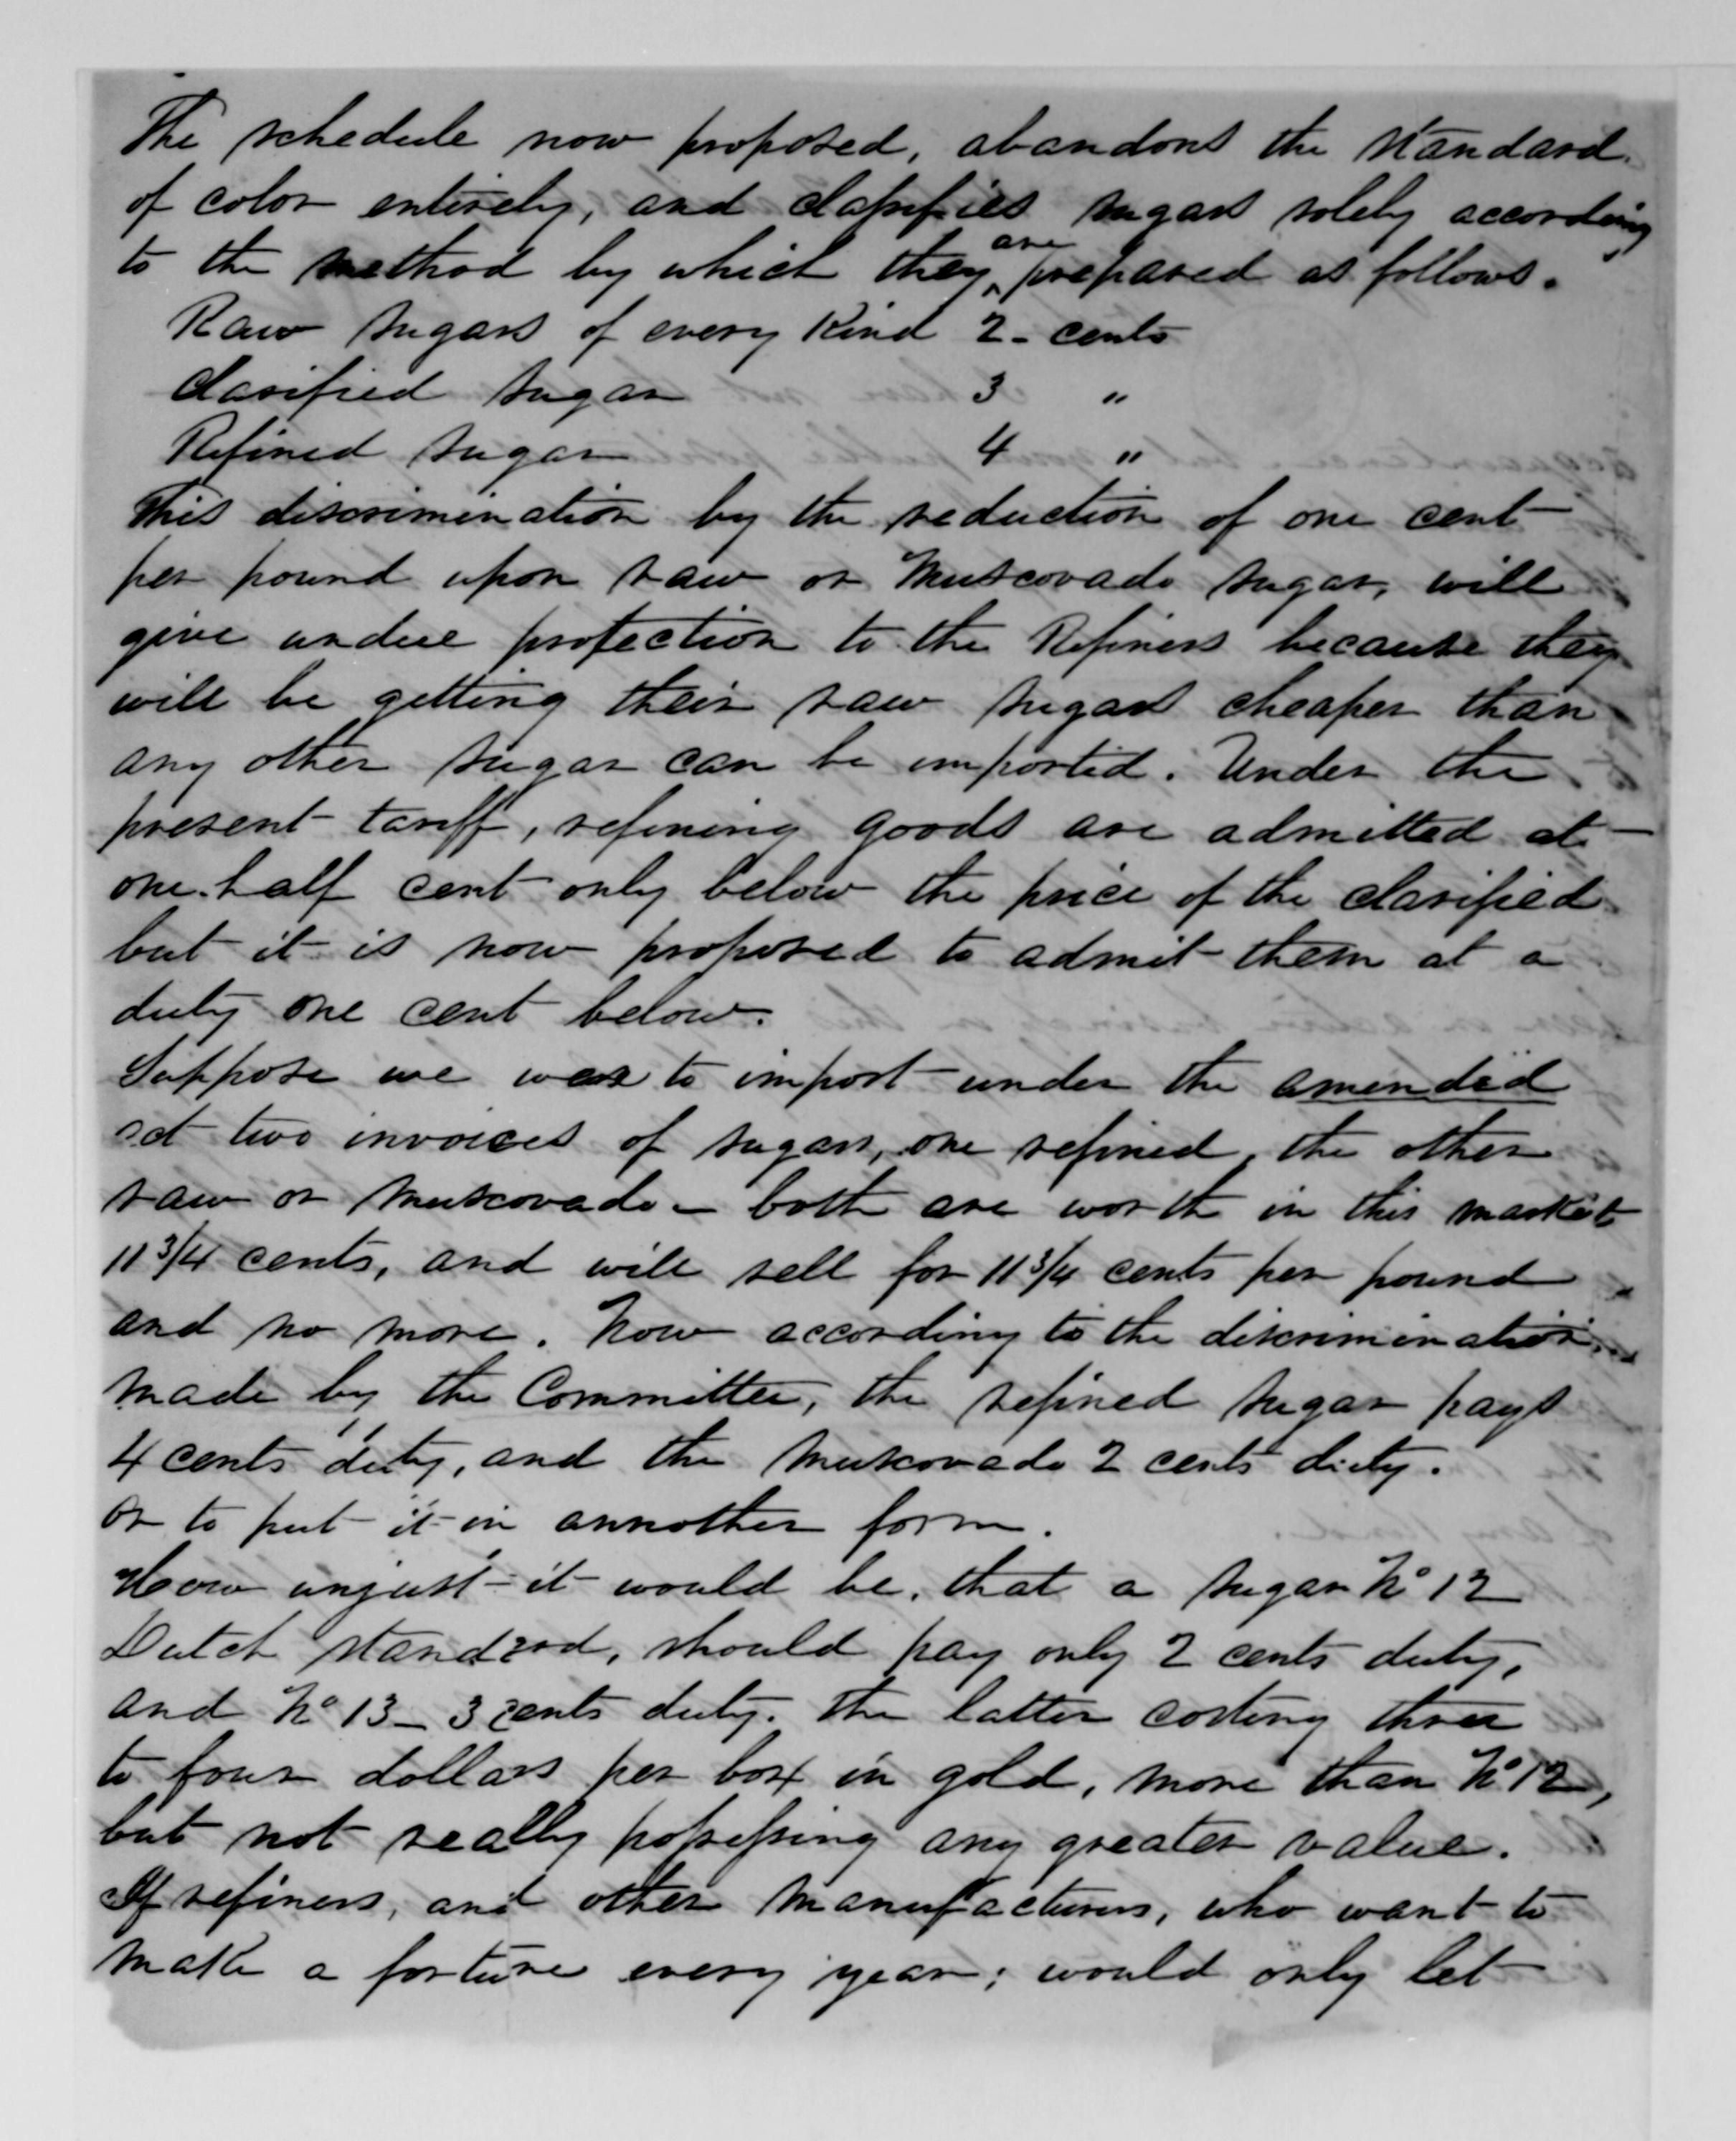 The schedule now proposed, abandons the standard
of color entirely, and classifies sugars solely according
to the method by which they are prepared as follows.
Raw sugars of every Kind 2 - cents
Clarified sugar 3 "
Refined sugar 4 "
This discrimination by the reduction of one cent
per pound upon raw or Muscovado sugar, will
give undue protection to the Refiners because they
will be getting their raw sugars cheaper than
any other sugar can be imported. Under the
present tariff, refining goods are admitted at
one half cent only below the price of the clarified
but it is now proposed to admit them at a
duty one cent below.
Suppose we were to import under the amended
act two invoices of sugars, one refined, the other
raw or muscovado - both are worth in this market
11 3/4 cents, and will sell for 11 3/4 cents per pound
and no more. Now according to the discrimination,
made by the Committee, the refined sugar pays
4 cents duty, and the muscovado 2 cents duty.
or to put it in annother form.
How unjust it would be, that a sugar No 12
Dutch standard, should pay only 2 cents duty,
and No 13 - 3 cents duty. the latter costing three
to four dollars per box in gold, more than No 12,
but not really possessing any greater value.
If refiners, and other manufacturers, who want to
make a fortune every year; would only let